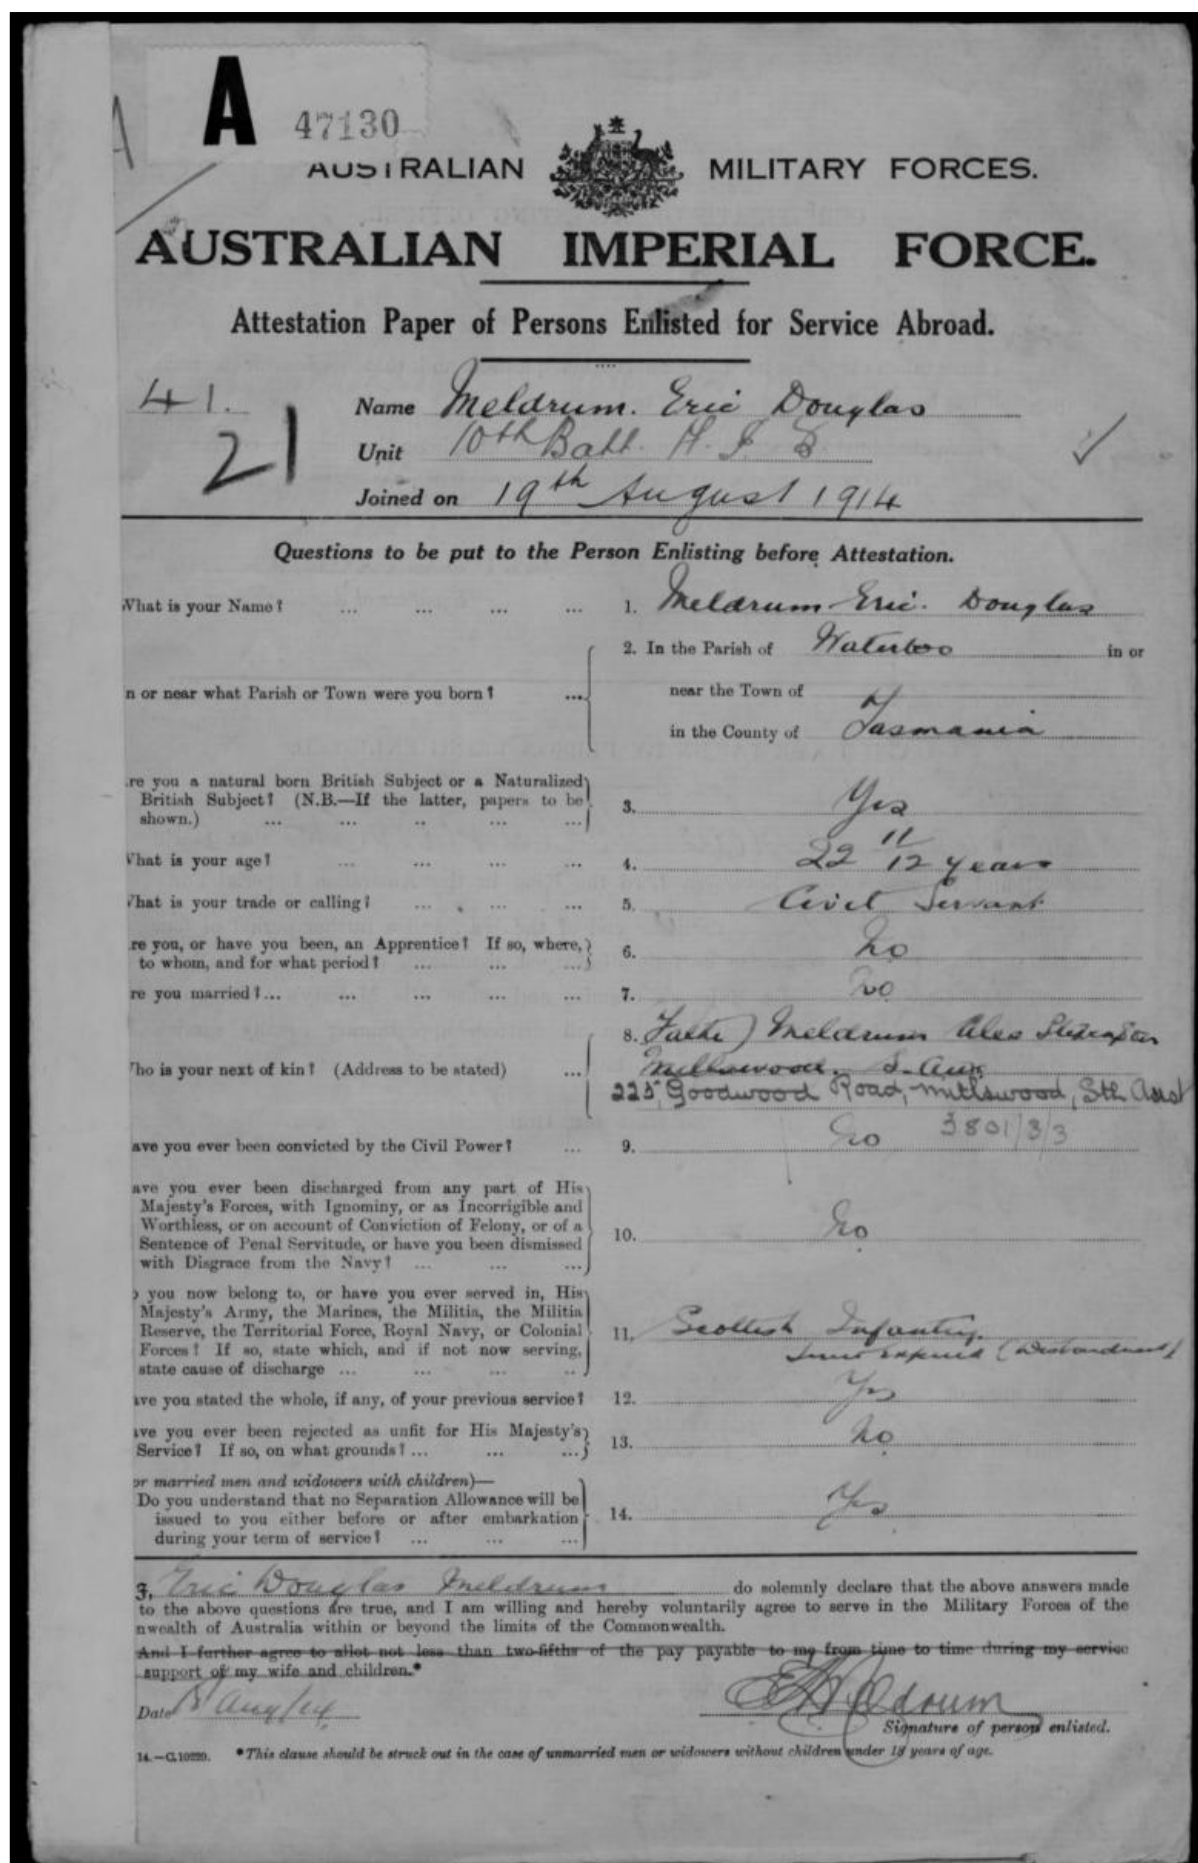 A 47130
AUSTRALIAN MILITARY FORCES.
AUSTRALIAN IMPERIAL FORCE.
Attestation Paper of Persons Enlisted for Service Abroad.
41.
21
Name Meldrum. Eric Douglas
Unit 10th Batt.
Joined on 19th August 1914
Questions to be put to the Person Enlisting before Attestation.
What is your Name? ... ... ... ... 1. Meldrum Eric. Douglas
2. In the Parish of Waterloo in or
n or near what Parish or Town were you born? ... near the Town of
in the County of Tasmania
re you a natural born British Subject or a Naturalized
British Subject? (N.B.—If the latter, papers to be 3. Yes
shown.) ... ... .. ... ...
What is your age? ... ... ... ... 4. 22 11/12 years
What is your trade or calling? ... ... ... ... 5. Civil Servant
re you, or have you been, an Apprentice? If so, where,
to whom, and for what period? ... ... ... 6. No
re you married?... ... ... ... ... 7. No
8. Father) Meldrum Alex
Who is your next of kin? (Address to be stated) ... Millswood. S. Aus
225, Goodwood Road, Millswood, Sth Aust
ave you ever been convicted by the Civil Power? ... 9. No 3801/3/3
ave you ever been discharged from any part of His
Majesty's Forces, with Ignominy, or as Incorrigible and
Worthless, or on account of Conviction of Felony, or of a
Sentence of Penal Servitude, or have you been dismissed 10. No
with Disgrace from the Navy? ... ... ...
o you now belong to, or have you ever served in, His
Majesty's Army, the Marines, the Militia, the Militia
Reserve, the Territorial Force, Royal Navy, or Colonial 11. Scottish Infantry.
Forces? If so, state which, and if not now serving, expired (Disbandment)
state cause of discharge ... ... ... ..
ave you stated the whole, if any, of your previous service? 12. Yes
ave you ever been rejected as unfit for His Majesty's
Service? If so, on what grounds?... ... ... 13. No
or married men and widowers with children)—
Do you understand that no Separation Allowance will be
issued to you either before or after embarkation 14. Yes
during your term of service? ... ... ...
I, Eric Douglas Meldrum do solemnly declare that the above answers made
to the above questions are true, and I am willing and hereby voluntarily agree to serve in the Military Forces of the
nwealth of Australia within or beyond the limits of the Commonwealth.
And I further agree to allot not less than two-fifths of the pay payable to me from time to time during my service
support of my wife and children.*
Date Aug/14. E D Meldrum
Signature of person enlisted.
14.—C.10220. *This clause should be struck out in the case of unmarried men or widowers without children under 18 years of age.